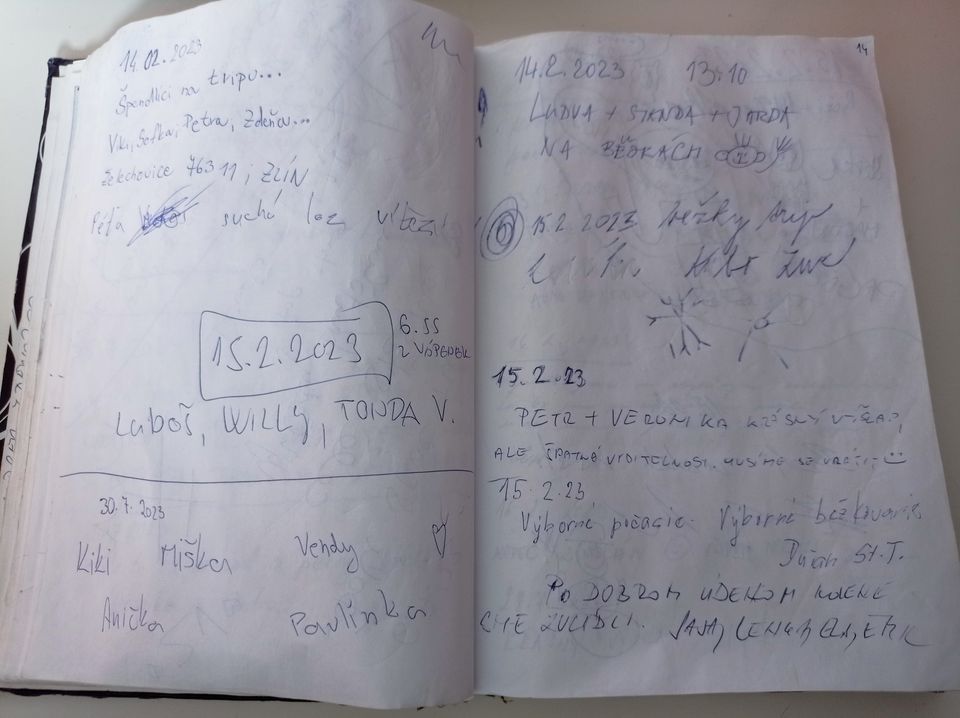 14.02.2023
Špendlíci na tripu...
Viki, Sofka, Petra, Zdeňa...
Želechovice 76311, ZLÍN
Péťa suchá loz vítězila
15.2.2023
6. SS
2 VÁPENEK
Luboš, WILLY, TONDA V.
30.7.2023
Kiki Miška Vendy
Anička Pavlínka
14
14.2.2023 13:10
LUDVA + STANDA + JARDA
NA BĚŽKÁCH
15.2.2023 běžky
15.2.23
PETR + VERONIKA KRÁSNÝ VÝŠLAP,
ALE ŠPATNÁ VIDITELNOST. MUSÍME SE VRÁTIT
15.2.23
Výborné počasie. Výborné bežkovanie
Dušan St.T.
PO DOBROM ÚDENOM KOLENE
SME ZVLÁDLI.